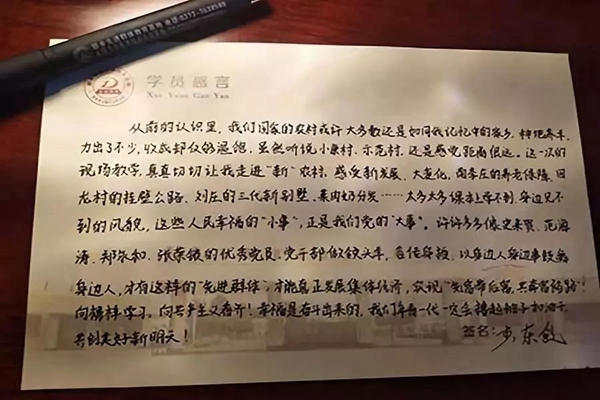 学员感言
Xue Yuan Gan Yan
从前的认识里，我们国家的农村或许大多数还是如同我记忆中的家乡，种地养羊，
力出了不少，收成却仅够温饱。虽然听说小康村、示范村，还是感觉距离很远。这一次的
现场教学，真真切切让我走进“新”农村，感受新发展、大变化，南李庄的养老保障、回
龙村的挂壁公路、刘庄的三代新别墅、素肉奶分发……太多太多课本上寻不到、身边见不
到的风貌，这些人民幸福的“小事”，正是我们党的“大事”。许许多多像史来贺、范海
涛、郑永和、张荣锁的优秀党员、党干部做领头羊，
以身边人身边事鼓舞
身边人，才有这样的“先进群体”，才能真正发展集体经济，实现“先富带后富，共奔富裕路”！
向榜样学习，向共产主义奋斗！幸福是奋斗出来的，我们年青一代一定会撸起袖子加油干，
共创美好新明天！
签名：
东